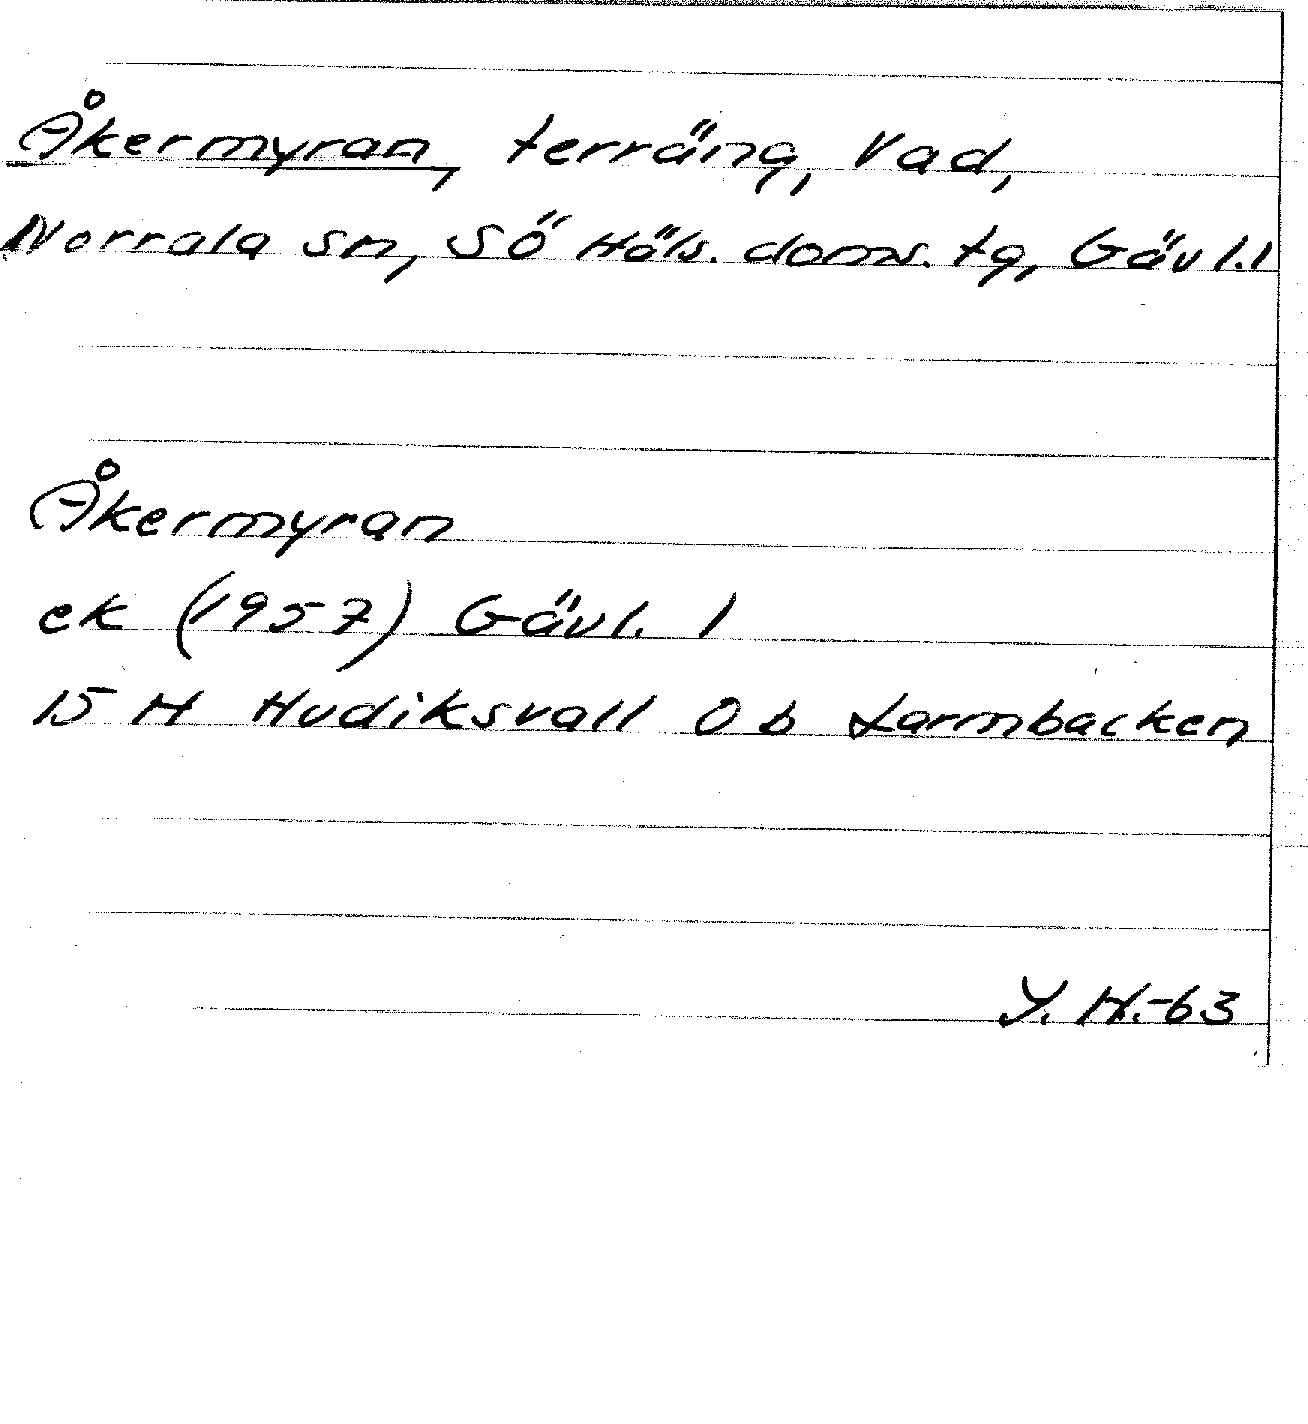 Åkermyran, terräng, Vad,
Norrala sn, SÖ Häls. doms. tg, Gävl. l
Åkermyran
ek (1957) Gävl. l
15 H Hudiksvall 0 b Larmbacken
Y. H.-63